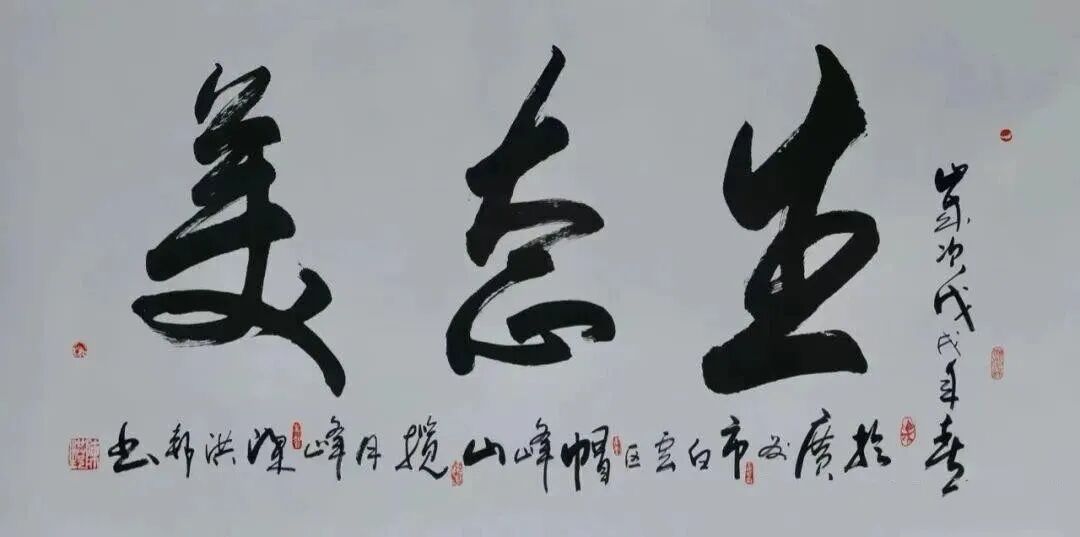 生态美
岁次戊戌年春
於廣州市白雲区帽峰山揽月峰梁洪郑书